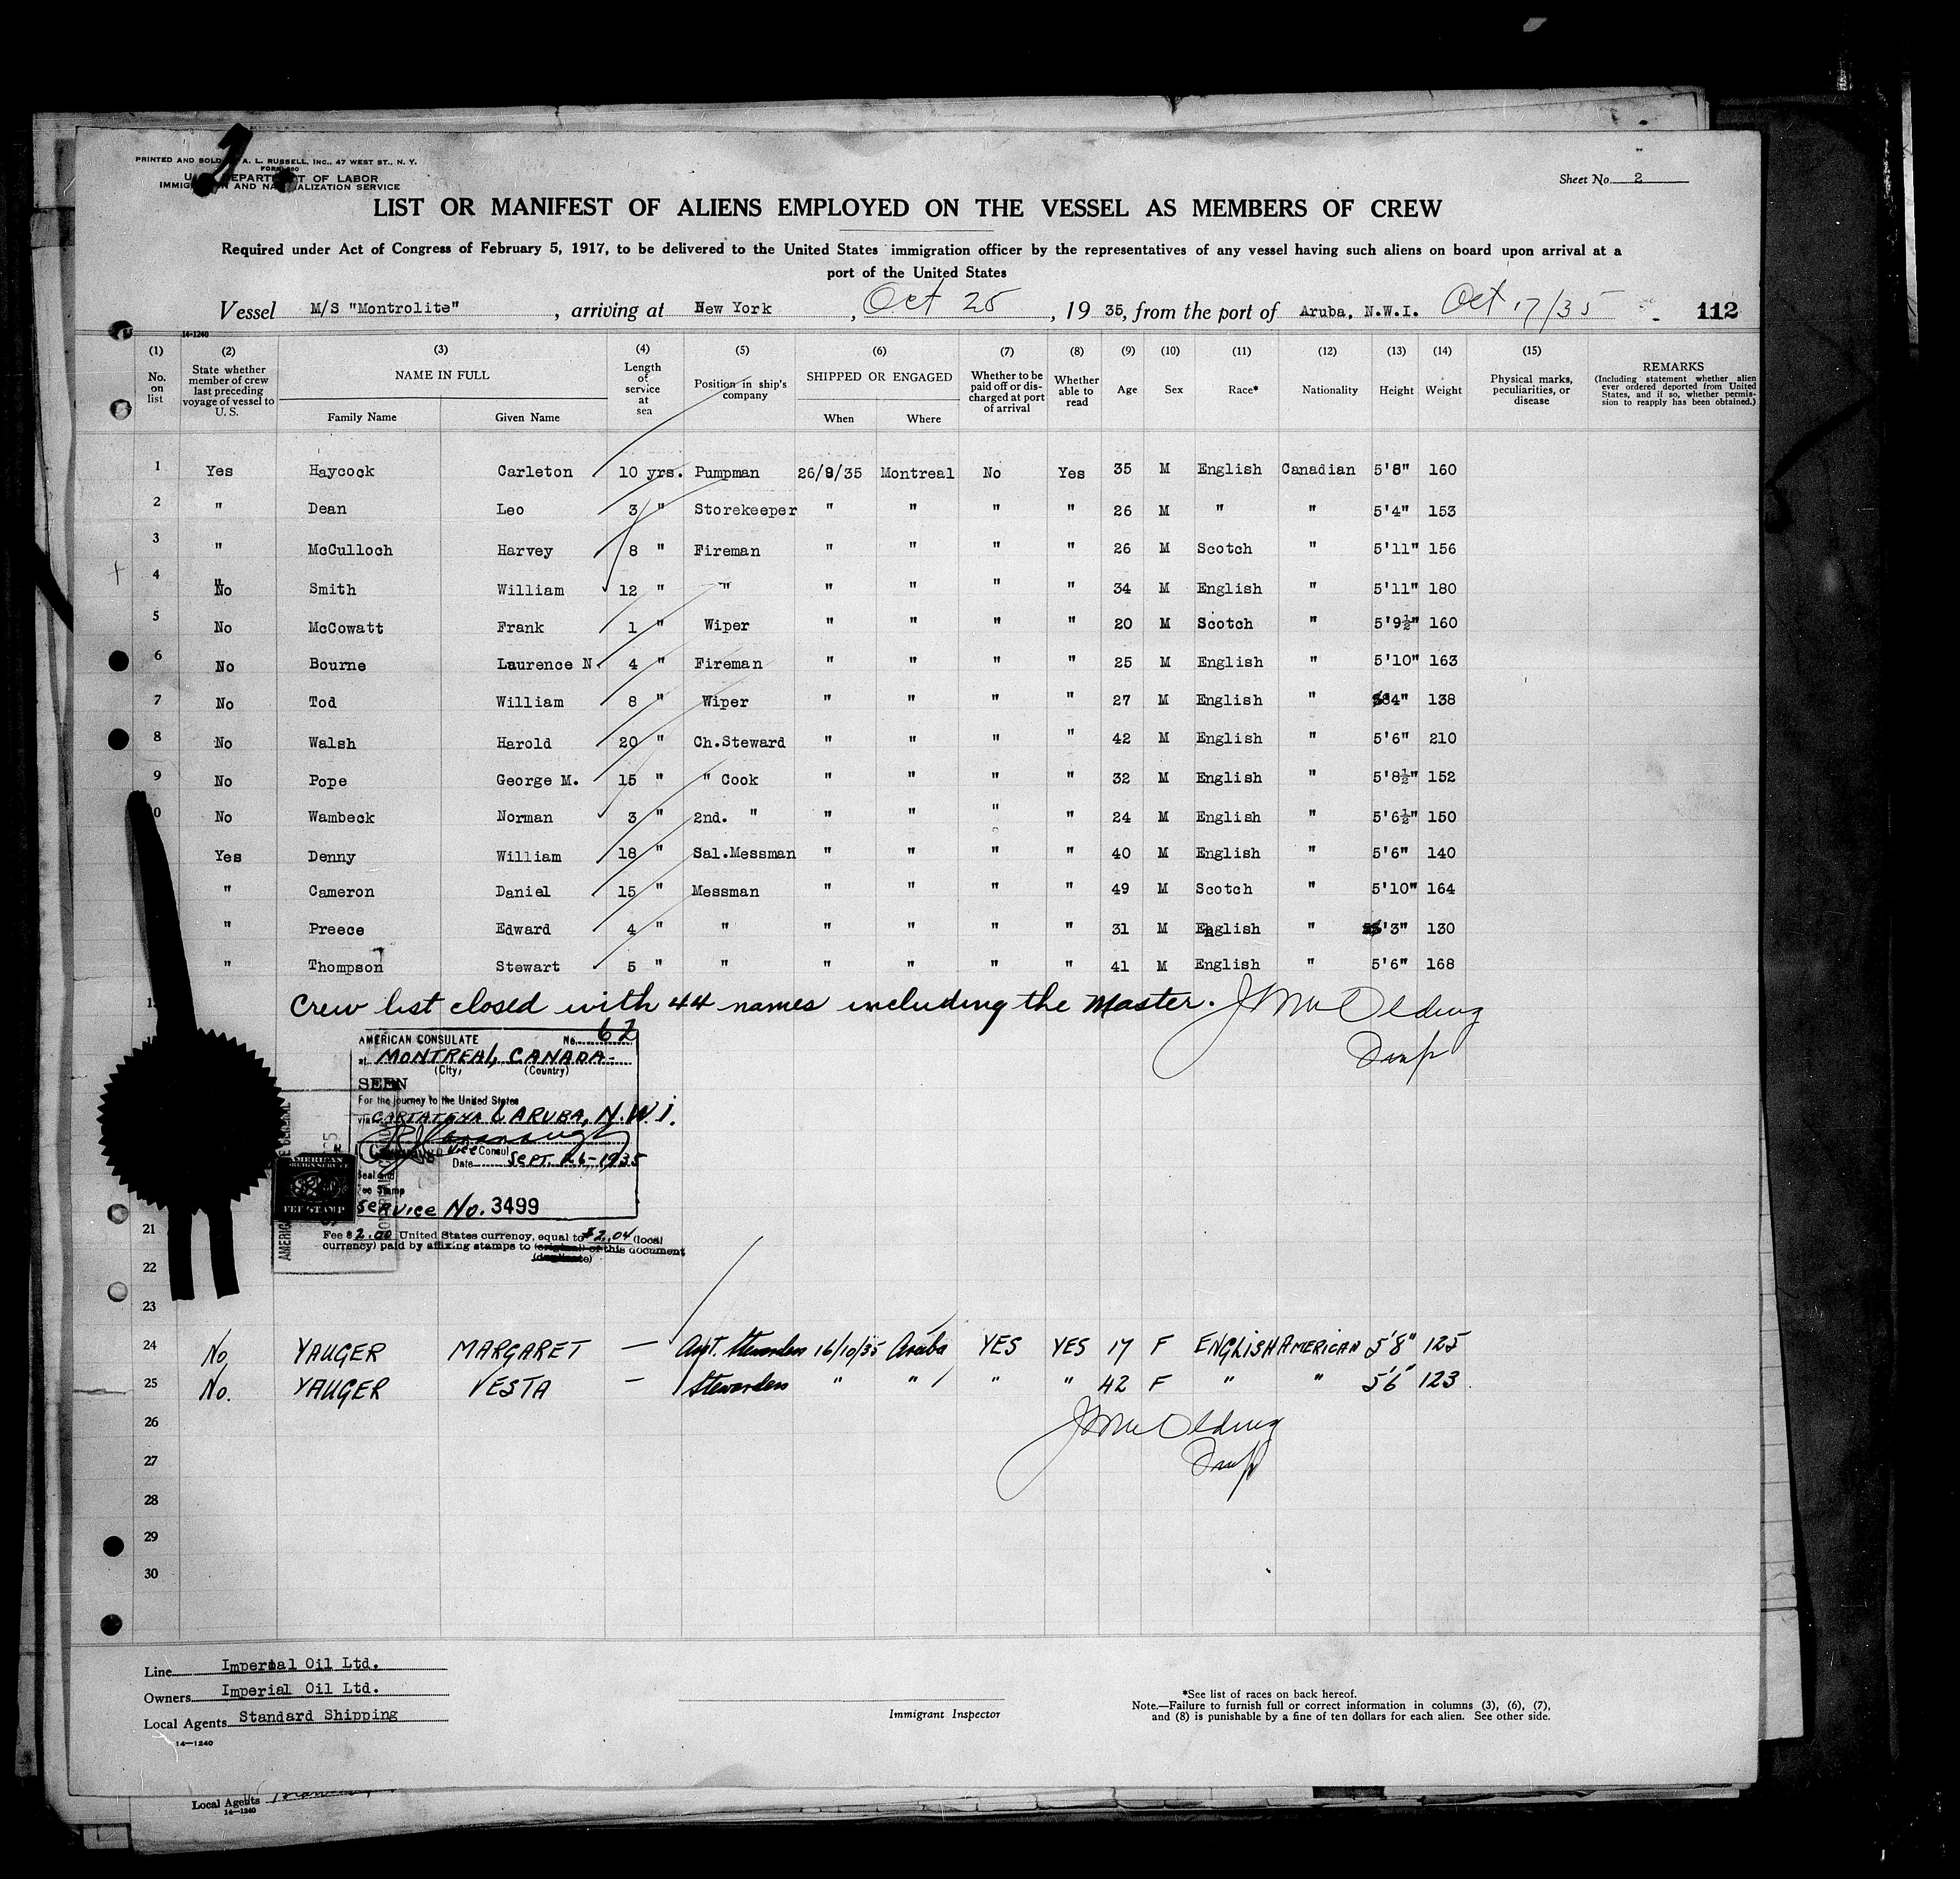 PRINTED AND SOLD A. L. RUSSELL, INC., 47 WEST ST., N. Y.
DEPARTMENT OF LABOR
IMMIGRATION AND NATURALIZATION SERVICE
Sheet No. 2
LIST OR MANIFEST OF ALIENS EMPLOYED ON THE VESSEL AS MEMBERS OF CREW
Required under Act of Congress of February 5, 1917, to be delivered to the United States immigration officer by the representatives of any vessel having such aliens on board upon arrival at a
port of the United States
Vessel M/S "Montrolite", arriving at New York, Oct 25, 19 35, from the port of Aruba, N.W.I. Oct 17/35 112
14-1240
(1) (2) (3) (4) (5) (6) (7) (8) (9) (10) (11) (12) (13) (14) (15)
No. on list State whether member of crew last preceding voyage of vessel to U. S. NAME IN FULL Length of service at sea Position in ship's company SHIPPED OR ENGAGED Whether to be paid off or discharged at port of arrival Whether able to read Age Sex Race* Nationality Height Weight Physical marks, peculiarities, or disease REMARKS (Including statement whether alien ever ordered deported from United States, and if so, whether permission to reapply has been obtained.)
Family Name Given Name When Where
1 Yes Haycock Carleton 10 yrs. Pumpman 26/9/35 Montreal No Yes 35 M English Canadian 5'8" 160
2 " Dean Leo 3 " Storekeeper " " " " 26 M " " 5'4" 153
3 " McCulloch Harvey 8 " Fireman " " " " 26 M Scotch " 5'11" 156
4 No Smith William 12 " " " " " " 34 M English " 5'11" 180
5 No McCowatt Frank 1 " Wiper " " " " 20 M Scotch " 5'9½" 160
6 No Bourne Laurence N. 4 " Fireman " " " " 25 M English " 5'10" 163
7 No Tod William 8 " Wiper " " " " 27 M English " 4" 138
8 No Walsh Harold 20 " Ch.Steward " " " " 42 M English " 5'6" 210
9 No Pope George M. 15 " " Cook " " " " 32 M English " 5'8½" 152
0 No Wambeck Norman 3 " 2nd. " " " " " 24 M English " 5'6½" 150
Yes Denny William 18 " Sal.Messman " " " " 40 M English " 5'6" 140
" Cameron Daniel 15 " Messman " " " " 49 M Scotch " 5'10" 164
" Preece Edward 4 " " " " " " 31 M English " '3" 130
" Thompson Stewart 5 " " " " " " 41 M English " 5'6" 168
Crew list closed with 44 names including the Master.
AMERICAN CONSULATE No. 62
at MONTREAL, CANADA
(City) (Country)
SEEN
For the journey to the United States
via CARTATENA & ARUBA, N.W.I.
Vice Consul
Date SEPT. 26-1935
Seal and
Fee Stamp
Service No. 3499
AMERICAN
FOREIGN SERVICE
FEE STAMP
Fee $ 2.00 United States currency, equal to $2.04 (local
currency) paid by affixing stamps to (original) of this document
(duplicate)
21
22
23
24 No YAUGER MARGARET — Asst. Stewardess 16/10/35 Aruba YES YES 17 F ENGLISH AMERICAN 5'8" 125
25 No. YAUGER VESTA — Stewardess " " " " 42 F " " 5'6" 123
26
27
28
29
30
Line Imperial Oil Ltd.
Owners Imperial Oil Ltd.
Local Agents Standard Shipping
14—1240
Immigrant Inspector
*See list of races on back hereof.
Note.—Failure to furnish full or correct information in columns (3), (6), (7),
and (8) is punishable by a fine of ten dollars for each alien. See other side.
Local Agents
14—1240